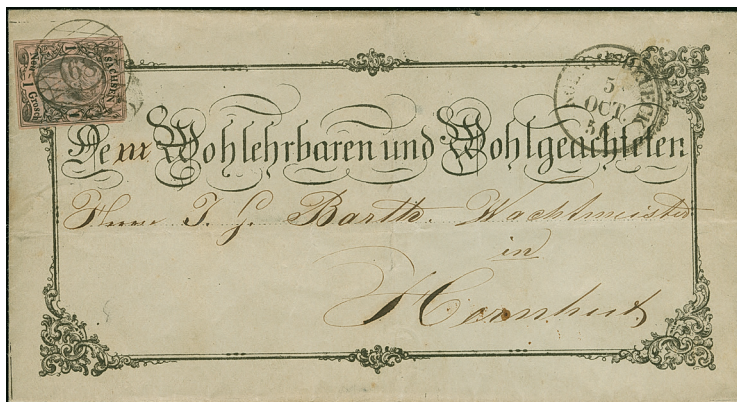 SACHSEN
Neu- 1 Grosch
1
1
68
5
OCT.
5
Dem Wohlehrbaren und Wohlgeachteten
Herrn J. G. Barth. Wachtmeister
in
Herrnhut